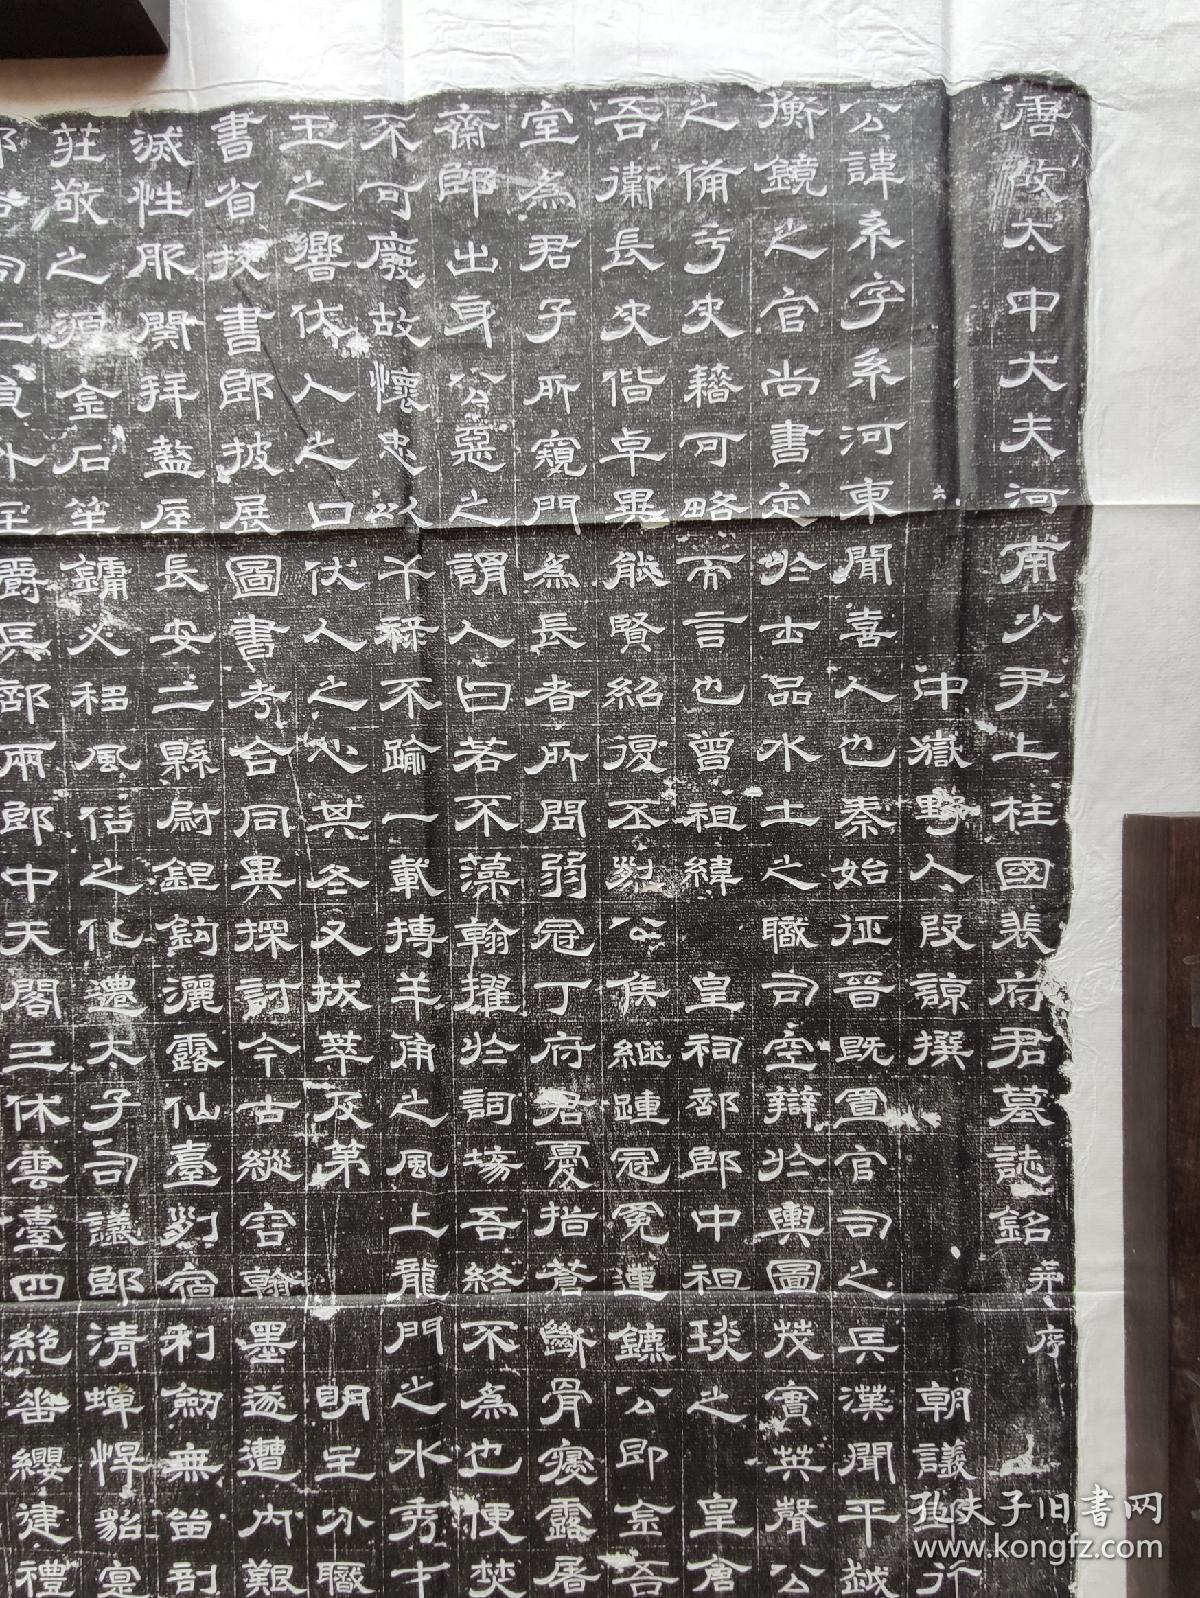 唐故太中大夫河南少尹上柱國裴府君墓誌銘 并序
中嶽野人段諒撰 朝議
公諱系字系河東聞喜人也秦始征晉既置官司之兵漢聞平越
衡鏡之官尚書定於士品水土之職司空辯於輿圖茂實英聲公
之備兮史籍可略而言也曾祖緯 皇祠部郎中祖琰之 皇倉
吾衛長史偕卓異能賢紹復丕烈公侯繼踵冠冕連鑣公即金吾
室為君子所窺門為長者所問弱冠丁府君憂指蒼斷骨寢露居
齋郎出身公惡之謂人曰若不藻翰擢於詞場吾終不為也便焚
不可廢故懷忠以干祿不踰一載搏羊角之風上龍門之水秀才
王之響伏人之口伏人之心其冬又拔萃及第 明主分職
書省校書郎披展圖書考合同異探討今古縱容翰墨遂遭內艱
滅性服闋拜盩厔長安二縣尉鋥鉤灑露仙臺列宿利劒無留剖
莊敬之須金石笙鏞人移風俗之化遷太子司議郎清蟬惸貂寔
員外至爵兵部兩郎中天閣三休雲臺四絕番纓建禮
孔夫子旧书网
www.kongfz.com